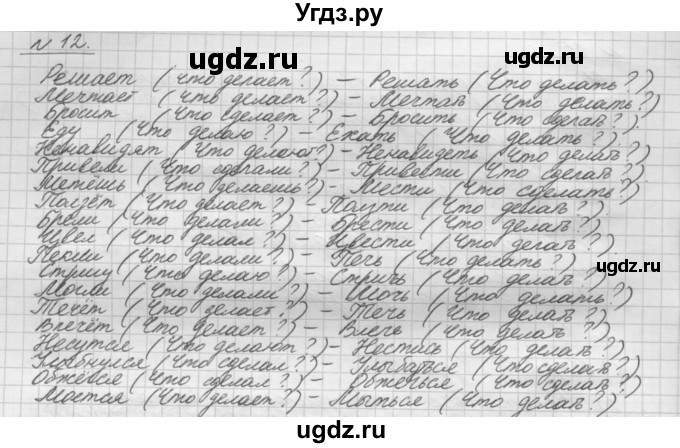 Угдз.ру
№ 12.
ugdz.ru ugdz.ru
Решает (Что делает?) – Решать (Что делать?).
Мечтает (Что делает?) – Мечтать (Что делать?)
Бросит (Что сделает?) – Бросить (Что сделать?).
Еду (Что делаю?) – Ехать (Что делать?).
Ненавидят (Что делают?) – Ненавидеть (Что делать?)
Привели (Что сделали?) – Привести (Что сделать?).
Метёшь (Что делаешь?) – Мести (Что сделать?)
Ползёт (Что делает?) – Ползти (Что делать?)
Брели (Что делали?) – Брести (Что делать?)
Цвёл (Что делал?) – Цвести (Что делать?)
ugdz.ru
Пекли (Что делали?) – Печь (Что делать?).
Стригу (Что делаю?) – Стричь (Что делать?)
Могли (Что делали?) – Мочь (Что делать?)
Течёт (Что делает?) – Течь (Что делать?)
Влечёт (Что делает?) – Влечь (Что делать?)
Несутся (Что делают?) – Нестись (Что делать?)
Улыбнулся (Что сделал?) – Улыбаться (Что сделать?)
Обжёгся (Что сделал?) – Обжечься (Что сделать?)
Моется (Что делает?) – Мыться (Что делать?)
ugdz.ru ugdz.ru